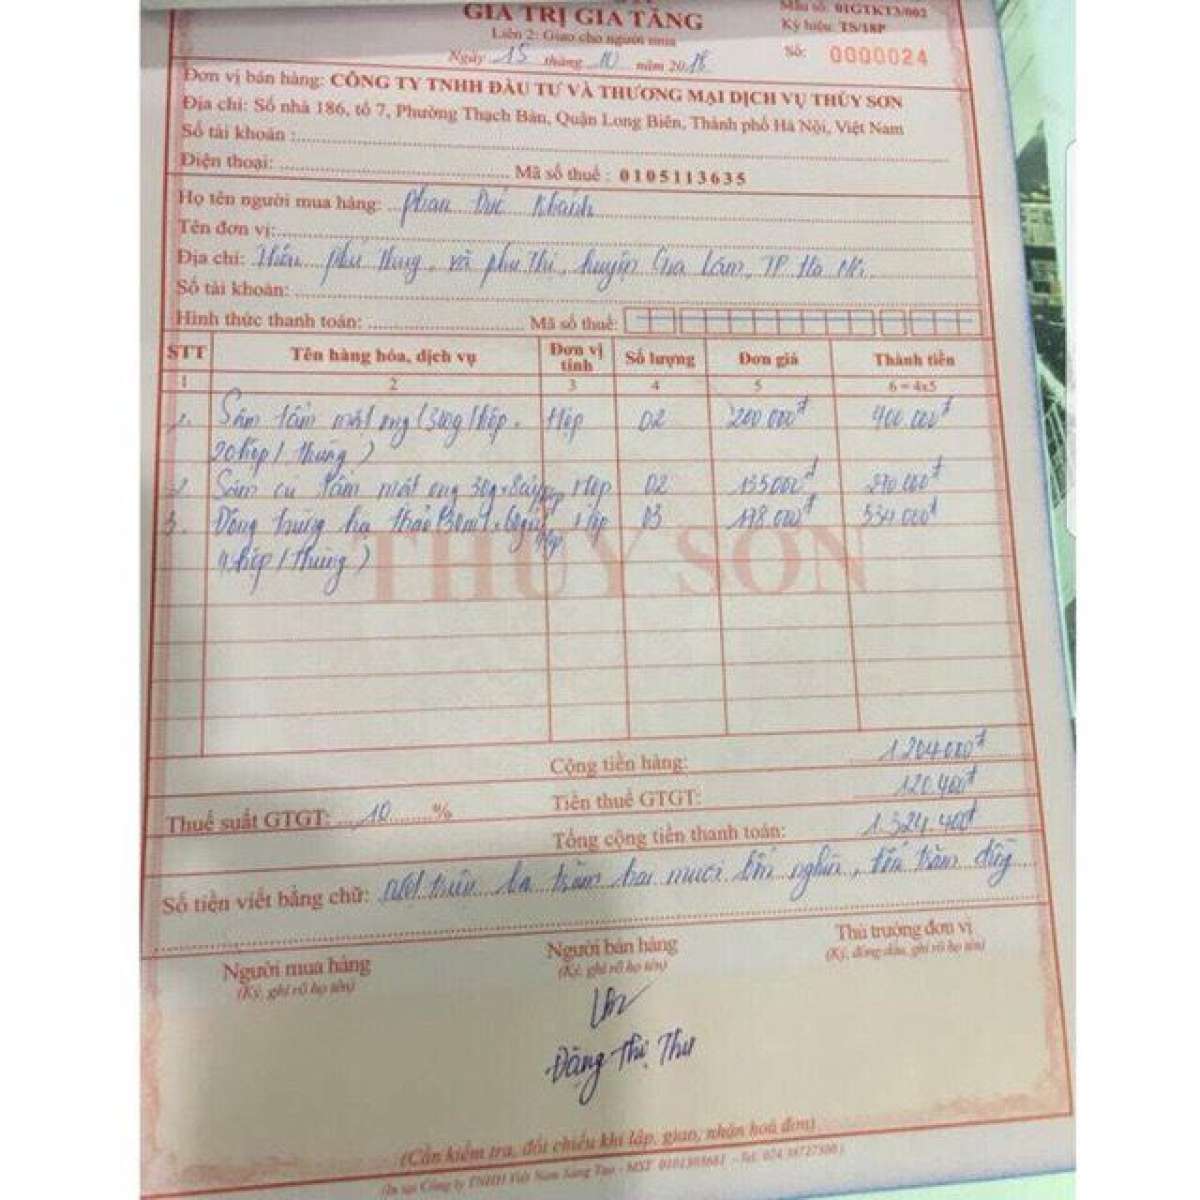 GIÁ TRỊ GIA TĂNG
Mẫu số: 01GTKT3/002
Liên 2: Giao cho người mua
Ký hiệu: TS/18P
Ngày 15 tháng 10 năm 2018
Số: 0000024
Đơn vị bán hàng: CÔNG TY TNHH ĐẦU TƯ VÀ THƯƠNG MẠI DỊCH VỤ THÚY SƠN
Địa chỉ: Số nhà 186, tổ 7, Phường Thạch Bàn, Quận Long Biên, Thành phố Hà Nội, Việt Nam
Số tài khoản :
Điện thoại: Mã số thuế : 0105113635
Họ tên người mua hàng: Phan Đức Khánh
Tên đơn vị:
Địa chỉ: phú Thụy, xã phú Thị, huyện Gia Lâm, TP Hà Nội
Số tài khoản:
Hình thức thanh toán: Mã số thuế:
STT Tên hàng hóa, dịch vụ Đơn vị tính Số lượng Đơn giá Thành tiền
1 2 3 4 5 6 = 4x5
1. Sâm tẩm mật ong (300g/hộp. Hộp 02 200.000đ 400.000đ
20hộp/thùng)
2. Sâm củ tẩm mật ong 30g x 8củ/hộp Hộp 02 135000đ 270.000đ
3. Đông trùng hạ thảo 30ml x 60gói/hộp Hộp 03 178.000đ 534000đ
4hộp/thùng)
THÚY SƠN
Cộng tiền hàng: 1.204.000đ
Thuế suất GTGT: 10 % Tiền thuế GTGT: 120.400đ
Tổng cộng tiền thanh toán: 1.324.400đ
Số tiền viết bằng chữ: Một triệu ba trăm hai mươi bốn nghìn, bốn trăm đồng
Người mua hàng Người bán hàng Thủ trưởng đơn vị
(Ký, ghi rõ họ tên) (Ký, ghi rõ họ tên) (Ký, đóng dấu, ghi rõ họ tên)
Đặng Thị Thư
(Cần kiểm tra, đối chiếu khi lập, giao, nhận hoá đơn)
(In tại Công ty TNHH Việt Nam Sáng Tạo - MST 0101303681 - Tel: 024 38727300)